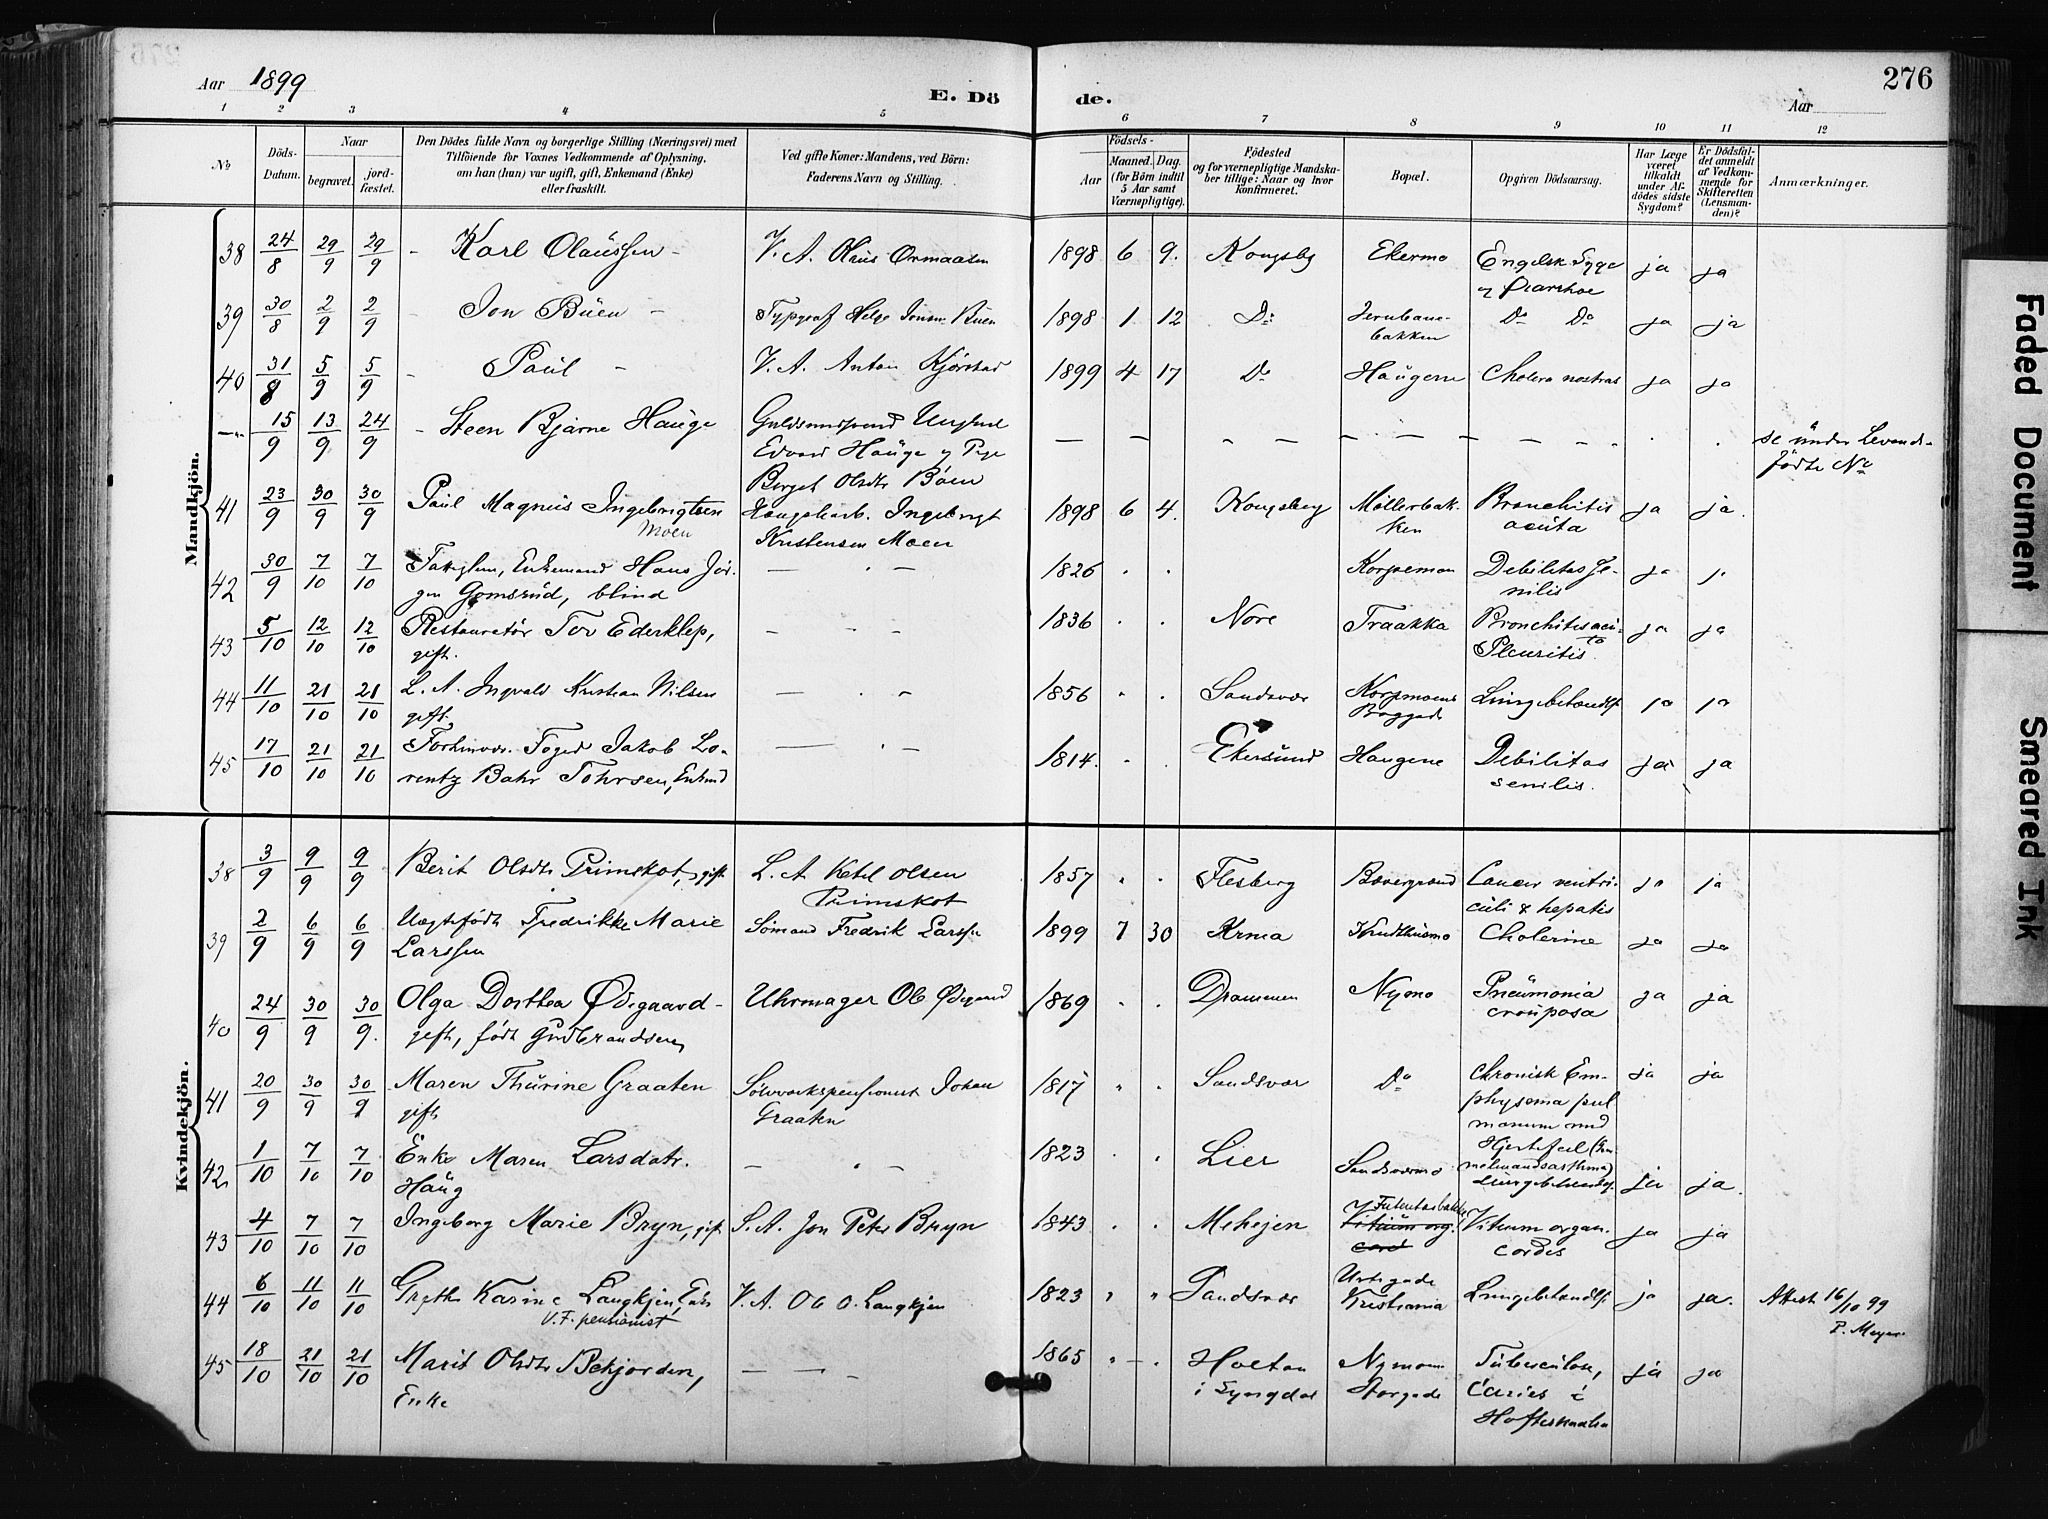 276
Aar 1899
E. Dö de.
Aar
1 2 3 4 5 6 7 8 9 10 11 12
No
Döds-Datum.
Naar
begravet.
jord-fæstet.
Den Dödes fulde Navn og borgerlige Stilling (Næringsvei) med
Tilföiende for Voxnes Vedkommende af Oplysning,
om han (hun) var ugift, gift, Enkemand (Enke)
eller fraskilt.
Ved gifte Koner: Mandens, ved Börn:
Faderens Navn og Stilling.
Födsels-
Aar
Maaned. Dag.
(for Börn indtil
5 Aar samt
Værnepligtige).
Födested
og for værnepligtige Mandska-
ber tillige: Naar og hvor
konfirmeret.
Bopæl.
Opgiven Dödsaarsag.
Har Læge
været
tilkaldt
under Af-
dödes sidste
Sygdom?
Er Dödsfal-
det anmeldt
af Vedkom-
mende for
Skifteretten
(Lensman-
den)?
Anmærkninger.
Mandkjön.
38 24/8 29/9 29/9 - Karl Olaüssen - V. A. Olaus Ormaasen 1898 6 9. Kongsbg Ekermo Engelsk Syge ja ja
39 30/8 2/9 2/9 - Jon Büen - Typograf Helge Jonsen Büen 1898 1 12 Do Jernbane-
bakken Do Do ja ja
40 31/8 5/9 5/9 - Paül - V. A. Anton Kjörstad 1899 4 17 Do Haügerne Cholera nostras ja ja
-"- 15/9 13/9 24/9 - Steen Bjarne Haüge Guldsmedsvend
Edvard Haüge og Pige
Berget Olsdtr Böen
— — — — — — — — — . . se ünder Levend-
födte No
41 23/9 30/9 30/9 Paül Magnüs Ingebrigtsen
Moen
Ingebrigt
Kristensen Moen
1898 6 4. Kongsberg Möllerbak-
ken Bronchitis
acüta ja ja.
42 30/9 7/10 7/10 Enkemand Hans Jör-
gen Gomsrüd, blind — " — 1826 . . Korpemoen Debilitas se-
nilis ja ja
43 5/10 12/10 12/10 Restauratör Tov Ederklep,
gift. — " — 1836 . . Nore Traakka Bronchitis acu-
ta
Pleuritis. ja ja
44 11/10 21/10 21/10 L. A. Ingvald Kristian Nilsen
gift. — . — 1856 " . Sandsvær Korpmoens
Baggade Lüngebetændls ja ja
45 17/10 21/10 21/10 Forhenvær. Foged Jakob Lo-
rentz Bahr Tohrsen, Enkmd — . — 1814. . . Ekersünd Haugene Debilitas
senilis. ja ja
Kvindekjön.
38 3/9 9/9 9/9 Berit Olsdtr Primskot, gift L. A. Ketil Olsen
Primskot 1857 " . Flesberg Bævergrænd Cancer ventri-
cüli & hepatis ja ja
39 2/9 6/9 6/9 Uægtefödt Fredrikke Marie
Larssen Sömand Fredrik Larssen 1899 7 30 Krudthusmo Cholerine ja ja
40 24/9 30/9 30/9. Olga Dorthea Ødegaard-
gift, født Gudbrandsen Uhrmager Ole Ødegaard 1869 . . Drammen Nymo Pneümonia
croüposa ja ja
41 20/9 30/9 30/9 Maren Thürine Graaten
gift Sölvværkspensionist Johan
Graaten 1817 " . Sandsvær Do chronisk Em-
physema pul
monum med
Hjertefeil ja ja
42 1/10 7/10 7/10 Enke Maren Larsdatr.
Haüg — " — 1823 . . Lier Sandsværmo Lüngebetændls. ja ja.
43 4/10 7/10 7/10 Ingeborg Marie Bryn, gift S. A. Jon Peter Bryn 1843 " . Mehejen
Vitiüm org.
cord
Vitium organ.
cordis ja ja
44 6/10 11/10 11/10 Grethe Karine Langkjen, Enke
V.F. pensionist V. A. Ole O. Langkjen 1823 " " Sandsvær
Kristiania Lüngebetændls ja ja. Attest 16/10 99
P. Meyer
45 18/10 21/10 21/10 Marit Olsdtr Bekjorden,
Enke — — 1865 " - . Holtan
i Lyngdal Nymoen
Storgade Tüberculose,
Caries i
Hofteskaalen ja ja
Faded Document
Smeared Ink